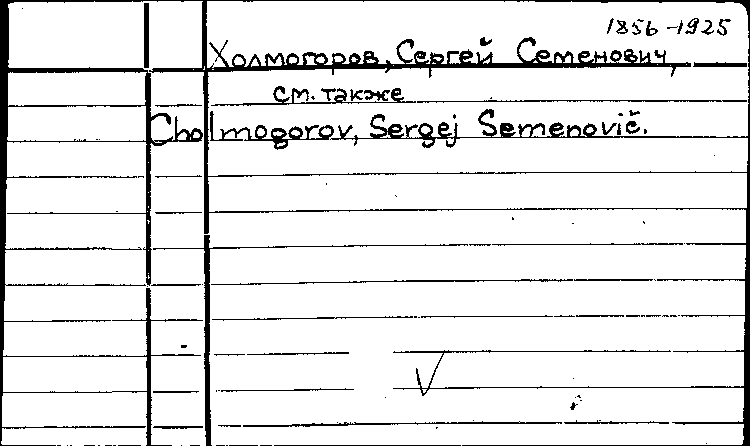 1856-1925
Холмогоров, Сергей Семенович,
см. также
Cholmogorov, Sergej Semenovič.